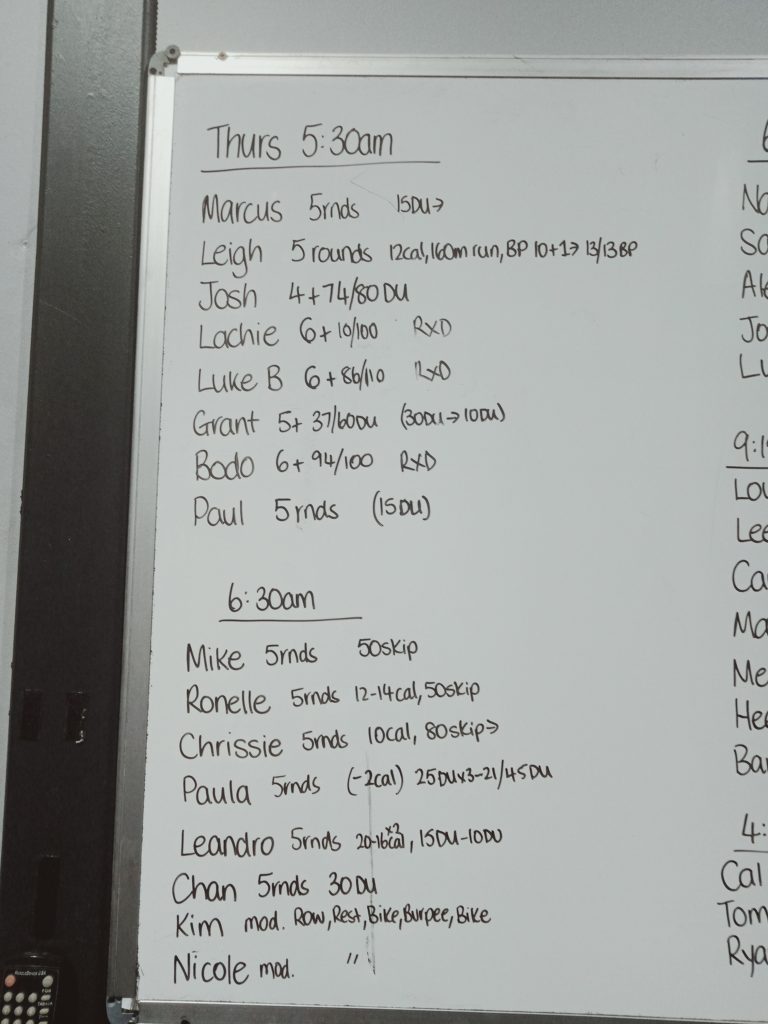 Thurs 5:30am
Marcus 5rnds 15DU→
Leigh 5 rounds 12cal, 160m run, BP 10+1→ 13/13 BP
Josh 4+74/80 DU
Lachie 6+10/100 RXD
Luke B 6+86/110 RXD
Grant 5+ 37/60DU (30DU→10DU)
Bodo 6+94/100 RXD
Paul 5rnds (15DU)
6:30am
Mike 5rnds 50skip
Ronelle 5rnds 12-14cal, 50skip
Chrissie 5rnds 10cal, 80skip→
Paula 5rnds (-2cal) 25DUx3-21/45DU
Leandro 5rnds 20-16cal, 15DU-10DU
Chan 5rnds 30DU
Kim mod. Row, Rest, Bike, Burpee, Bike
Nicole mod. "
6
No
Sa
Ale
Jo
Lu
9:1
Lou
Lee
Ca
Ma
Me
Hee
Bar
4:
Cal
Tom
Rya